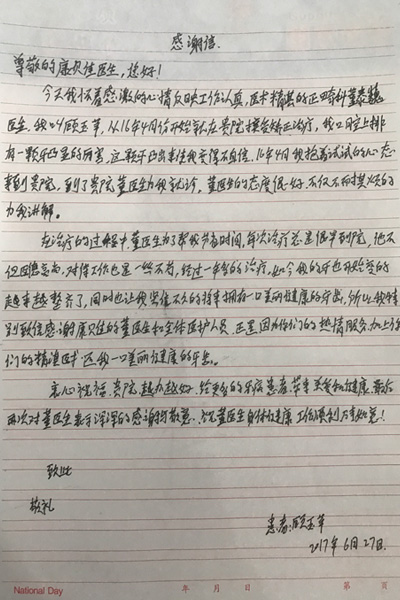 感谢信.
尊敬的康贝佳医生,您好!
今天我怀着感激的心情反映工作认真,医术精湛的正畸科董泰魏
医生,我叫顾玉苹,从16年4月份开始就在贵院接受矫正治疗,我口腔上排
有一颗牙凸显的厉害,这颗牙凸出来使我变得不自信,16年4月我抱着试试的心态
来到贵院,到了贵院董医生为我就诊,董医生的态度很好,不仅不厌其烦的
为我讲解。
在治疗的过程中董医生为了帮我节省时间,每次治疗总是很早到院,他不
但医德高尚,对待工作也是一丝不苟,经过一年多的治疗,如今我的牙也开始变的
越来越整齐了,同时也让我坚信不久的将来拥有一口美丽健康的牙齿,所以我特
别致信感谢康贝佳的董医生和全体医护人员,正是因为你们的热情服务加上你
们的精湛医术 还我一口美丽健康的牙齿。
衷心祝福:贵院越办越好,给更多的牙病患者,带来关爱和健康,最后
再次对董医生表示深深的感谢与敬意,祝董医生身体健康 工作顺利万事如意!
致此
敬礼
患者:顾玉苹
2017年6月27日.
National Day 年 月 日 第 页